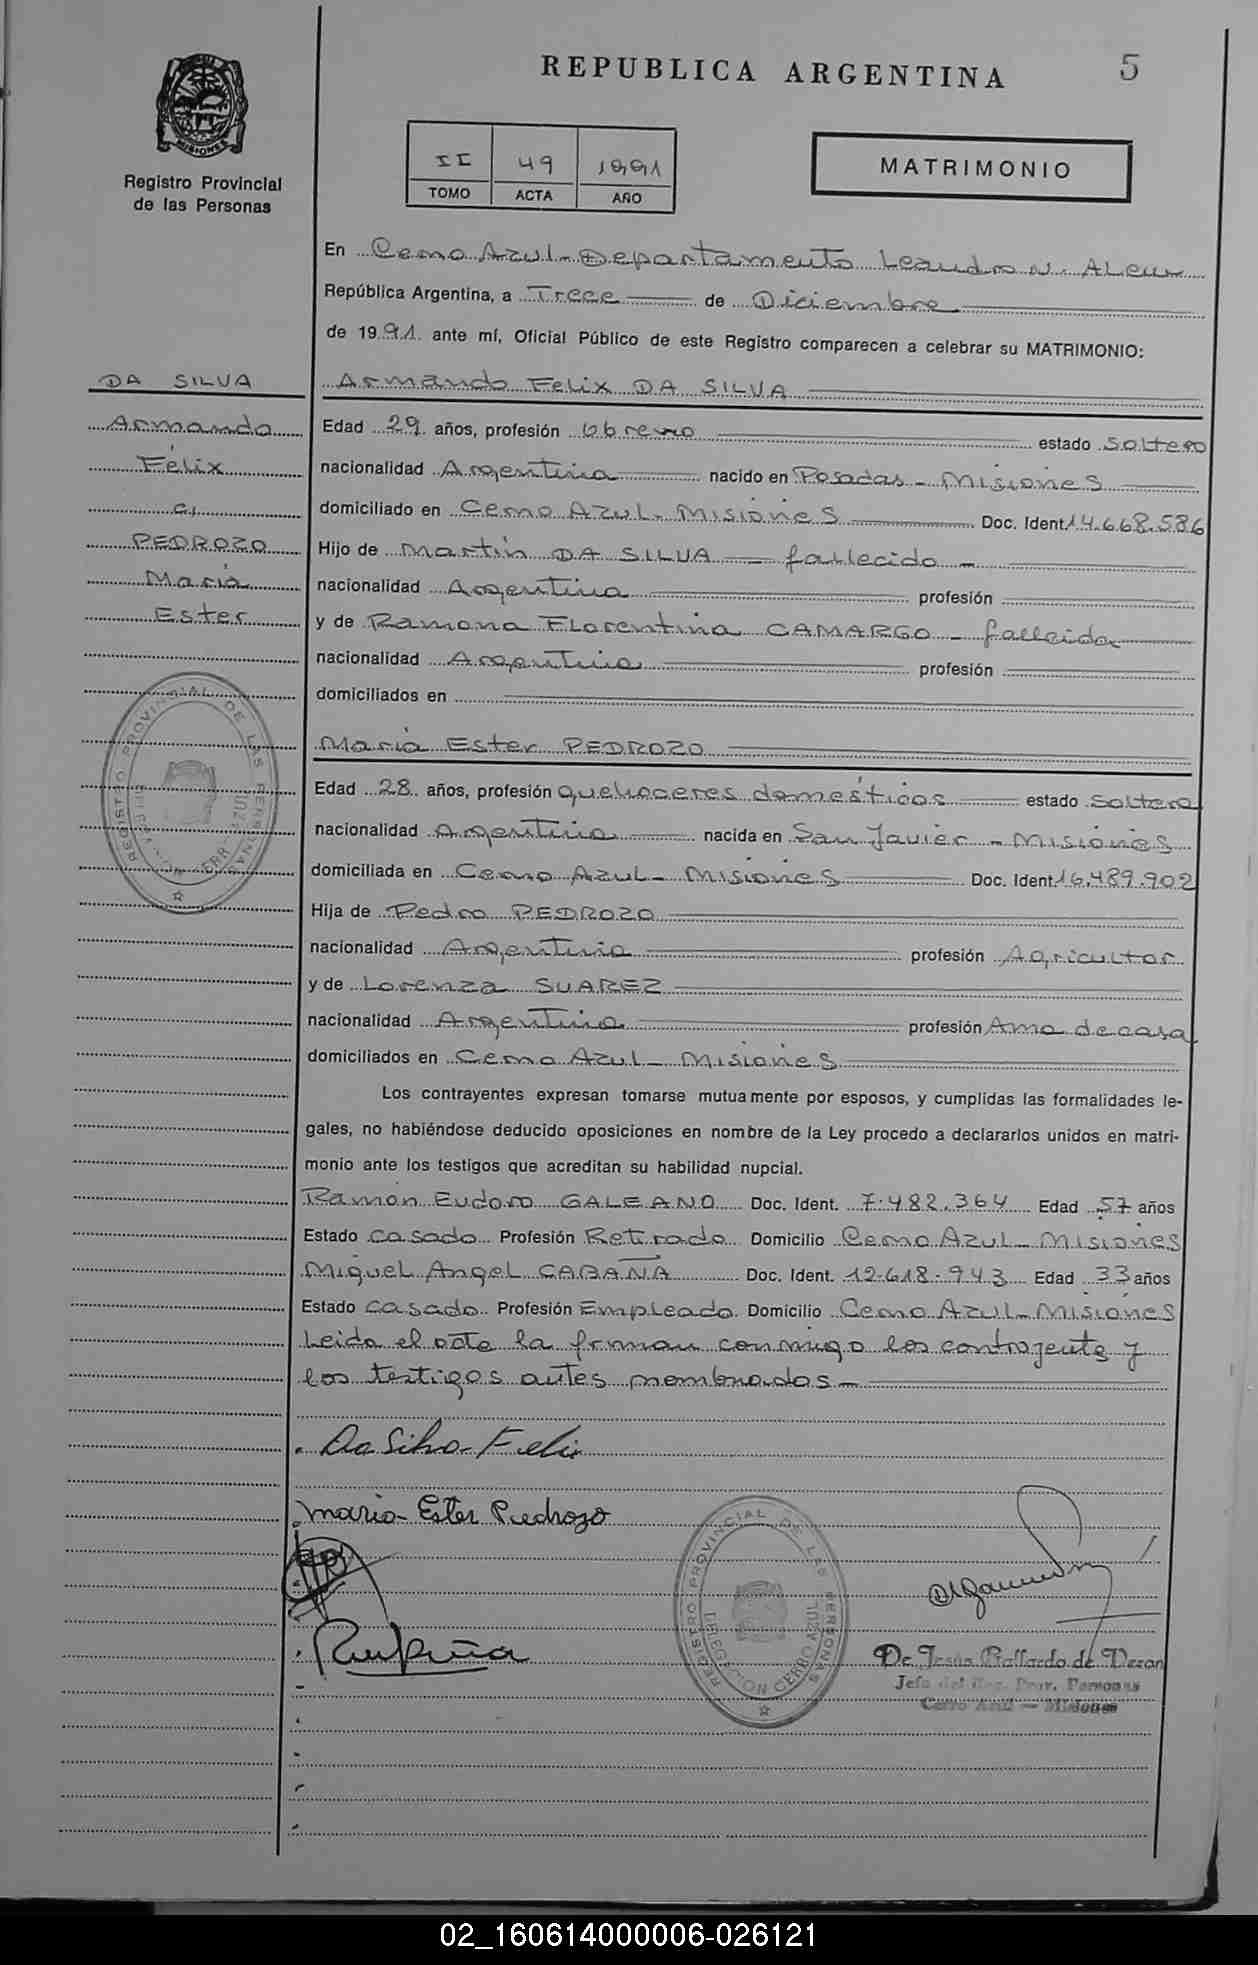 REPUBLICA ARGENTINA 5
MISIONES
Registro Provincial
de las Personas
II 49 1991
TOMO ACTA AÑO
MATRIMONIO
En Cerro Azul - Departamento Leandro N. ALem
República Argentina, a Trece de Diciembre
de 1991 ante mí, Oficial Público de este Registro comparecen a celebrar su MATRIMONIO:
DA SILVA
Armando
Félix
c/
PEDROZO
María
Ester
Armando Felix DA SILVA
Edad 29 años, profesión Obrero estado soltero
nacionalidad Argentina nacido en Posadas - Misiones
domiciliado en Cerro Azul - Misiones Doc. Ident 14.668.586
Hijo de Martín DA SILVA - fallecido -
nacionalidad Argentina profesión
y de Ramona Florentina CAMARGO - fallecida
nacionalidad Argentina profesión
domiciliados en
María Ester PEDROZO
Edad 28 años, profesión quehaceres domésticos estado soltera
nacionalidad Argentina nacida en San Javier - Misiones
domiciliada en Cerro Azul - Misiones Doc. Ident. 16.489.902
Hija de Pedro PEDROZO
nacionalidad Argentina profesión Agricultor
y de Lorenza SUAREZ
nacionalidad Argentina profesión Ama de casa
domiciliados en Cerro Azul - Misiones
Los contrayentes expresan tomarse mutuamente por esposos, y cumplidas las formalidades le-
gales, no habiéndose deducido oposiciones en nombre de la Ley procedo a declararlos unidos en matri-
monio ante los testigos que acreditan su habilidad nupcial.
Ramón Eudoro GALEANO Doc. Ident. 7.482.364 Edad 57 años
Estado casado Profesión Retirado Domicilio Cerro Azul - Misiones
Miguel Angel CABAÑA Doc. Ident. 12.618.943 Edad 33 años
Estado casado Profesión Empleado Domicilio Cerro Azul - Misiones
Leida el acta la firman conmigo los contrayentes y
los testigos antes nombrados -
Da Silva Felix
Maria Ester Pedrozo
REGISTRO PROVINCIAL DE LAS PERSONAS
DELEGACION CERRO AZUL
De Jesús Gallardo de Duran
Jefa del Reg. Prov. Personas
Cerro Azul - Misiones
02_160614000006-026121